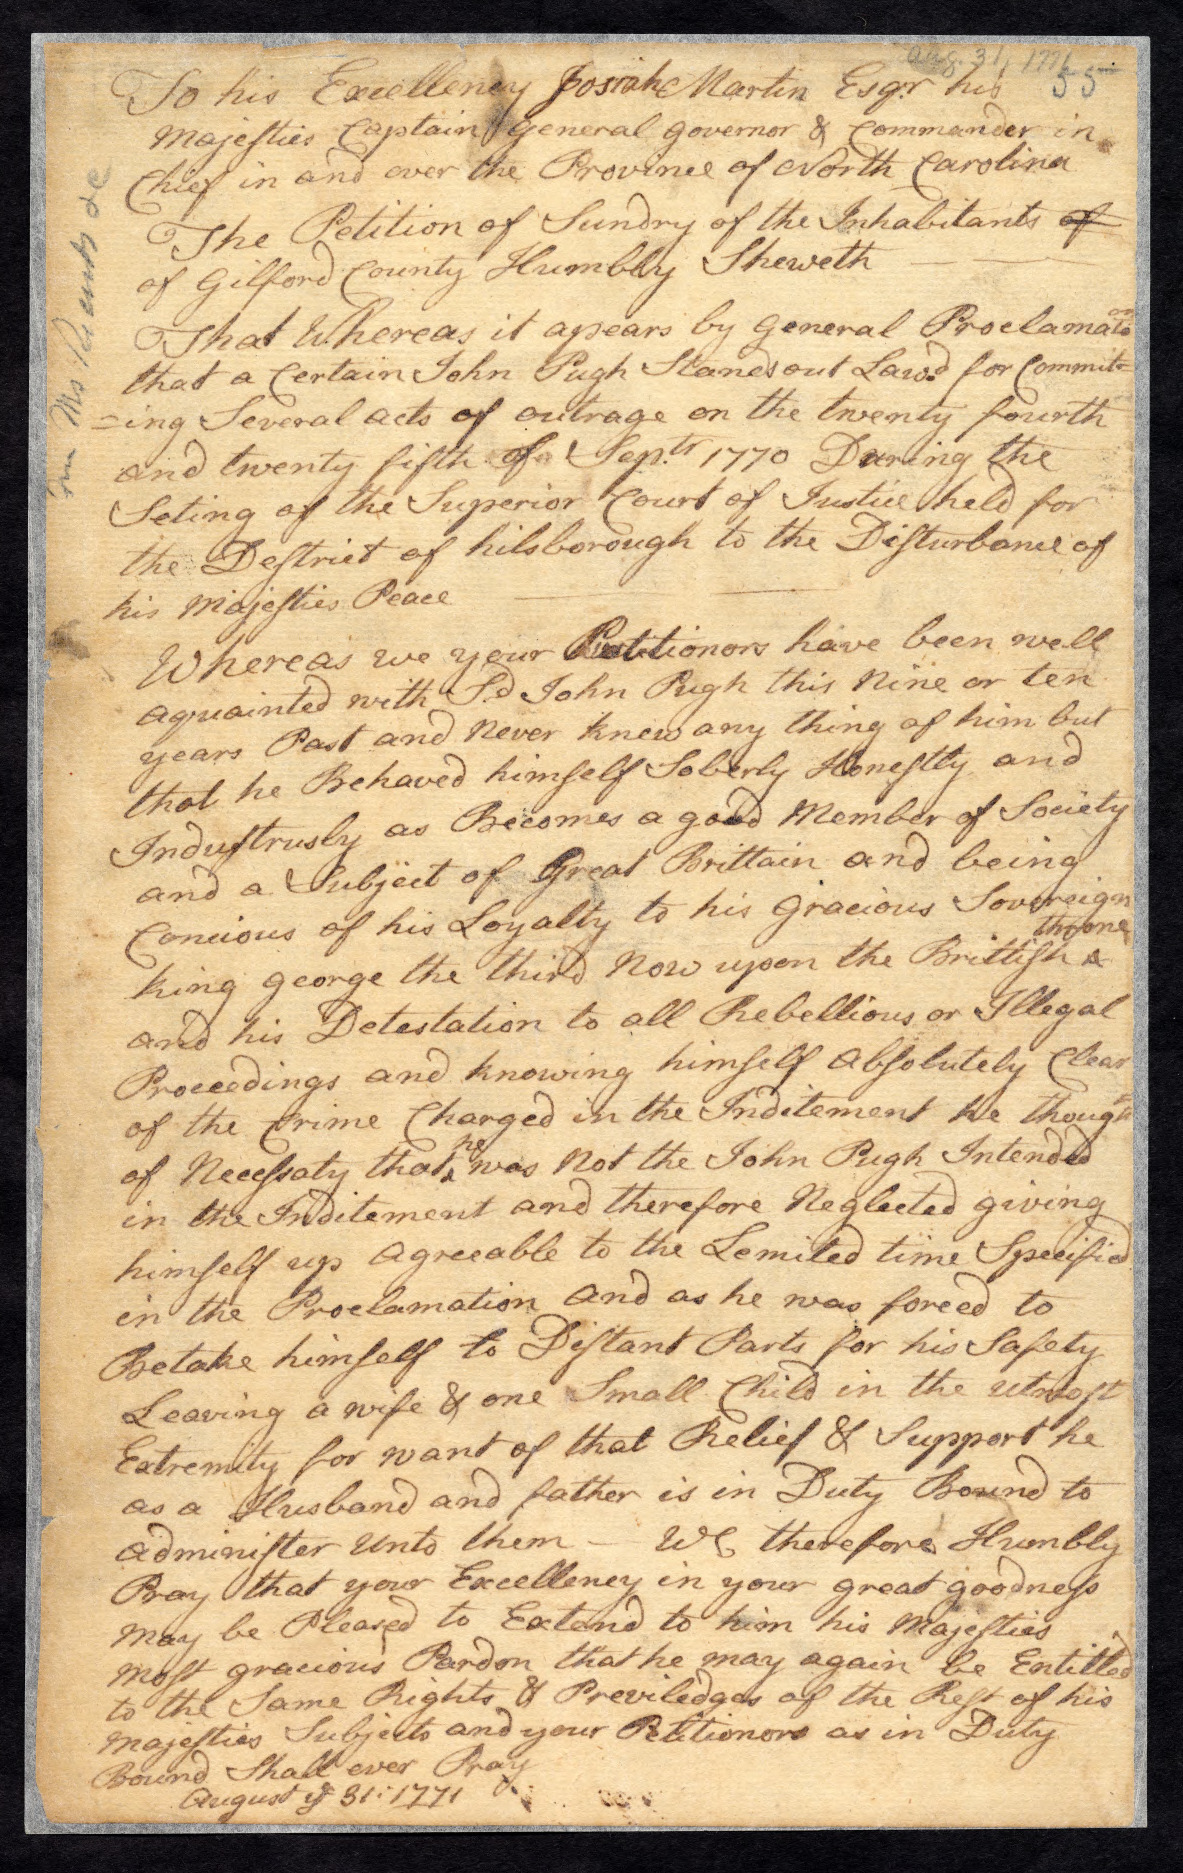 Aug. 31, 1771
55
To his Excellency Josiah Martin Esqr. his
Majesties Captain general governor & Commander in
Chief in and over the Province of North Carolina
The Petition of Sundry of the Inhabitants of
of Gilford County Humbly Sheweth
That Whereas it apears by general Proclamation
that a Certain John Pugh Stands out Lawd. for Commit=
=ing Several acts of outrage on the twenty fourth
and twenty fifth of Septr. 1770 During the
Seting of the Superior Court of Justice held for
the Destrict of hilsborough to the Disturbance of
his Majesties Peace
Whereas we your Petitionors have been well
aquainted with Sd. John Pugh this Nine or ten
years Past and Never knew any thing of him but
that he Behaved himself Soberly Honestly and
Industrusly as Becomes a good Member of Society
and a Subject of Great Brittain and being
Concious of his Loyalty to his gracious Sovereign
throne
king george the third Now upon the Brittish
and his Detestation to all Rebellious or Illegal
Proceedings and knowing himself absolutely Clear
of the Crime Charged in the Inditement he thought
of Necessaty that he was Not the John Pugh Intended
in the Inditement and therefore Neglected giving
himself up agreeable to the Lemited time Specified
in the Proclamation and as he was forced to
Betake himself to Distant Parts for his Safety
Leaving a wife & one Small Child in the utmost
Extremity for want of that Relief & Support he
as a Husband and father is in Duty Bound to
administer Unto them – We therefore Humbly
Pray that your Excellency in your great goodness
may be Pleased to Extend to him his Majesties
most gracious Pardon that he may again be Entitled
to the Same Rights & Previledges of the Rest of his
Majesties Subjects and your Petitionors as in Duty
Bound Shall ever Pray
August ye 31: 1771